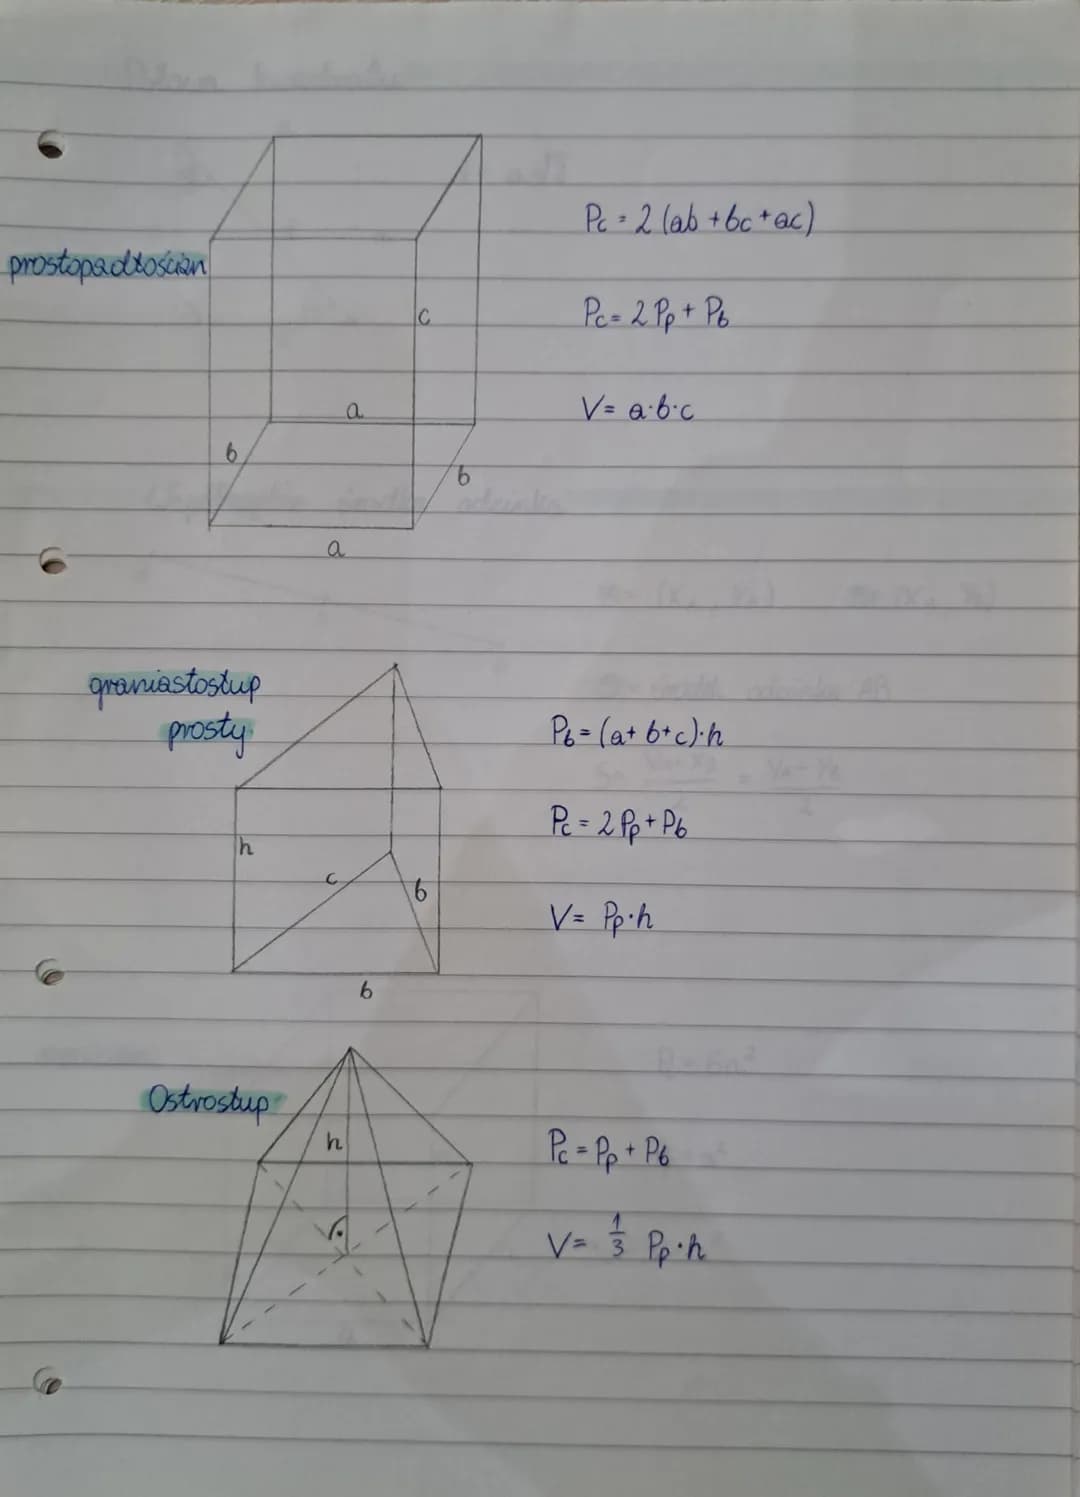 prostopadłościan
Pc = 2 (ab + bc + ac)
Pc = 2 Pp + Pb
V = a·b·c
c
a
b
b
a
graniastosłup
prosty
Pb = (a + b + c)·h
Pc = 2 Pp + Pb
V = Pp·h
h
c
b
b
Ostrosłup
h
Pc = Pp + Pb
V = 1/3 Pp·h